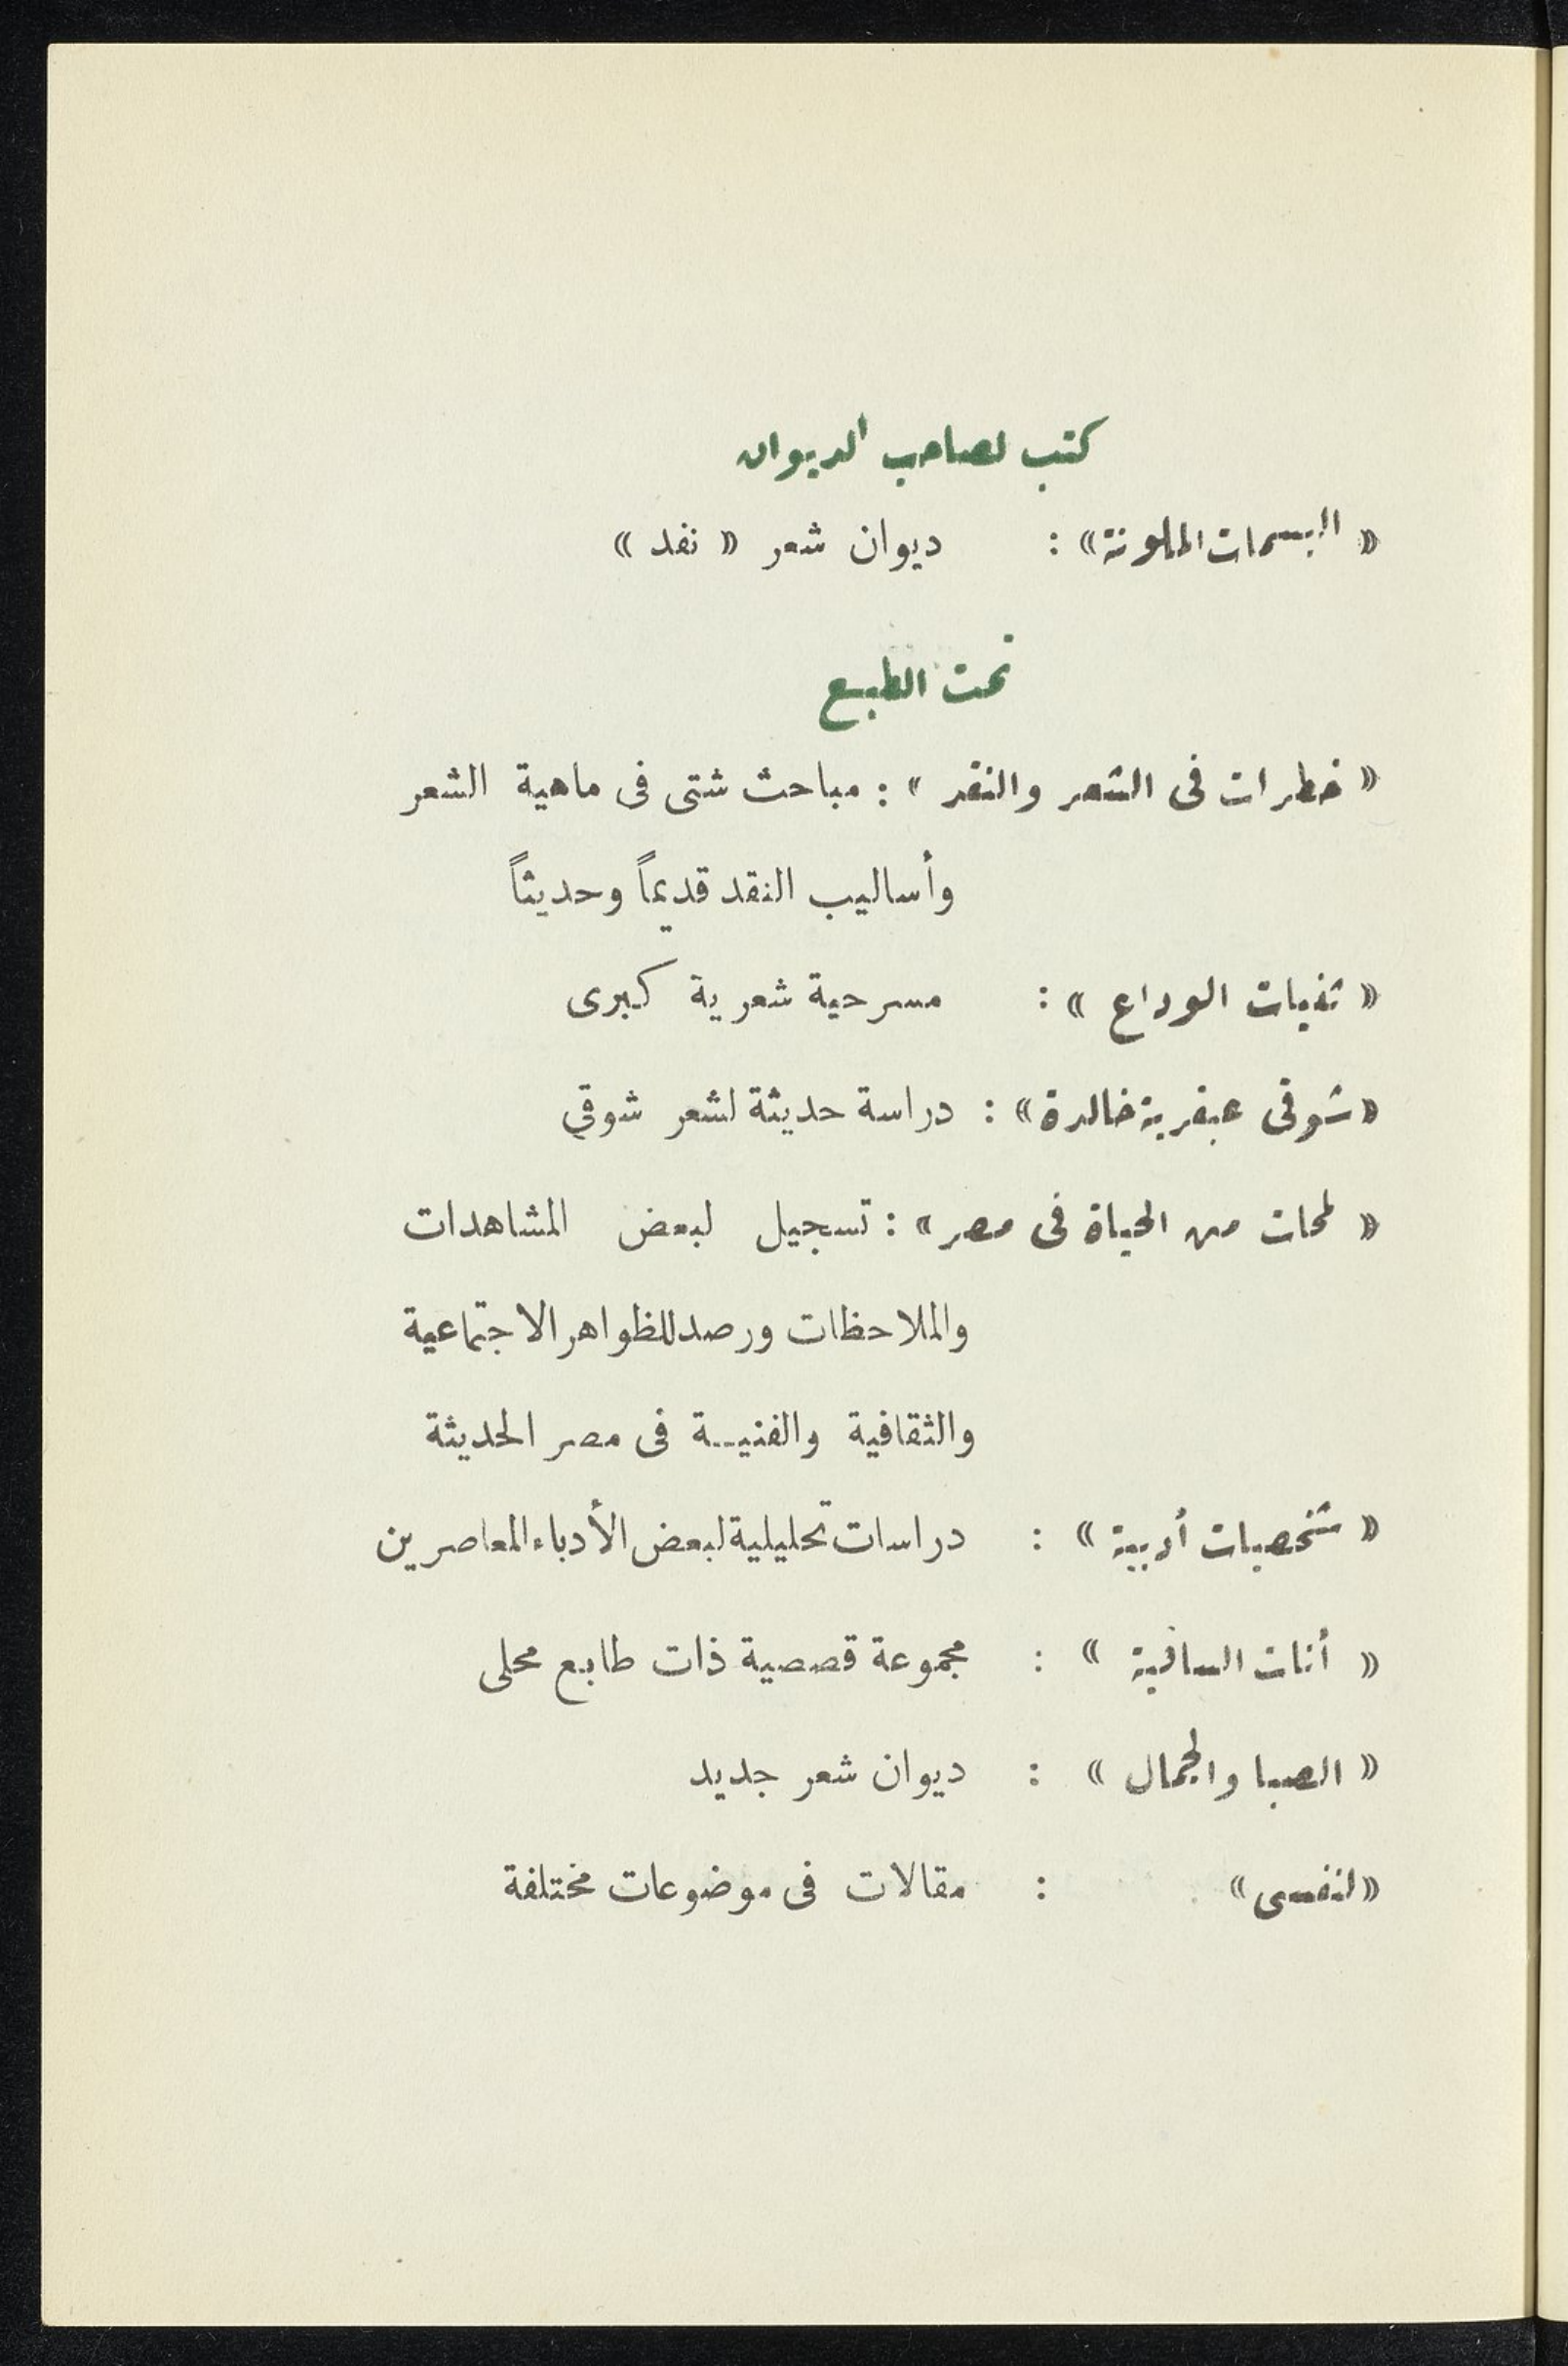 كتب لصاحب الديوان
« البسمات الملونة » : ديوان شعر « نفد »
تحت الطبع
« خطرات فى الشعر والنقد » : مباحث شتى فى ماهية الشعر
وأساليب النقد قديماً وحديثاً
« ثنيات الوداع » : مسرحية شعرية كبرى
« شوقى عبقرية خالدة » : دراسة حديثة لشعر شوقي
« لمحات من الحياة فى مصر » : تسجيل لبعض المشاهدات
والملاحظات ورصد للظواهر الاجتماعية
والثقافية والفنيــة فى مصر الحديثة
« شخصيات أدبية » : دراسات تحليلية لبعض الأدباء المعاصرين
« أنات الساقية » : مجموعة قصصية ذات طابع محلى
« الصبا والجمال » : ديوان شعر جديد
« لنفسى » : مقالات فى موضوعات مختلفة